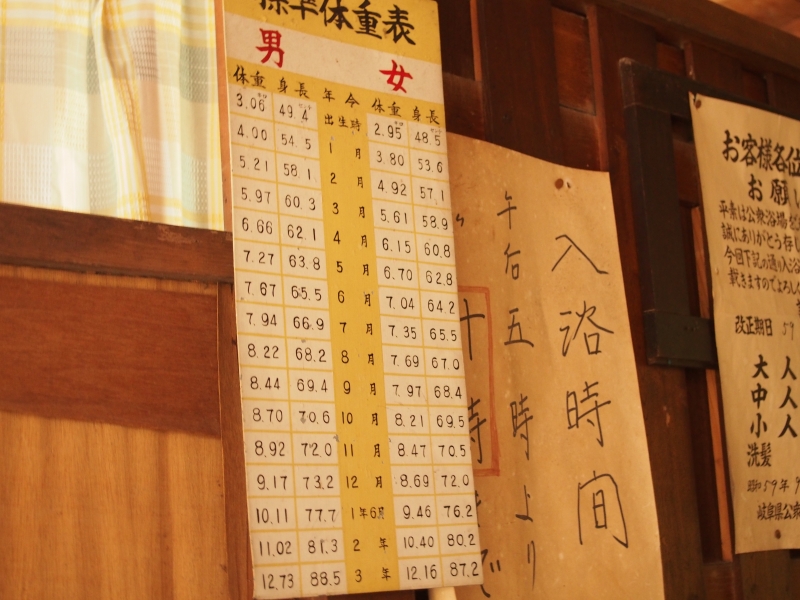 標準体重表
男 女
体重 身長 年令 体重 身長
3.06 49.4 出生時 2.95 48.5
4.00 54.5 1月 3.80 53.6
5.21 58.1 2月 4.92 57.1
5.97 60.3 3月 5.61 58.9
6.66 62.1 4月 6.15 60.8
7.27 63.8 5月 6.70 62.8
7.67 65.5 6月 7.04 64.2
7.94 66.9 7月 7.35 65.5
8.22 68.2 8月 7.69 67.0
8.44 69.4 9月 7.97 68.4
8.70 70.6 10月 8.21 69.5
8.92 72.0 11月 8.47 70.5
9.17 73.2 12月 8.69 72.0
10.11 77.7 1年6月 9.46 76.2
11.02 81.3 2年 10.40 80.2
12.73 88.5 3年 12.16 87.2
入浴時間
午后五時より
十時まで
お客様各位
お願い
平素は公衆浴場を
誠にありがとう存し
今回下記の通り入浴
戴きますのでよろし
改正期日 59
大人
中人
小人
洗髪
昭和59年9
岐阜県公衆